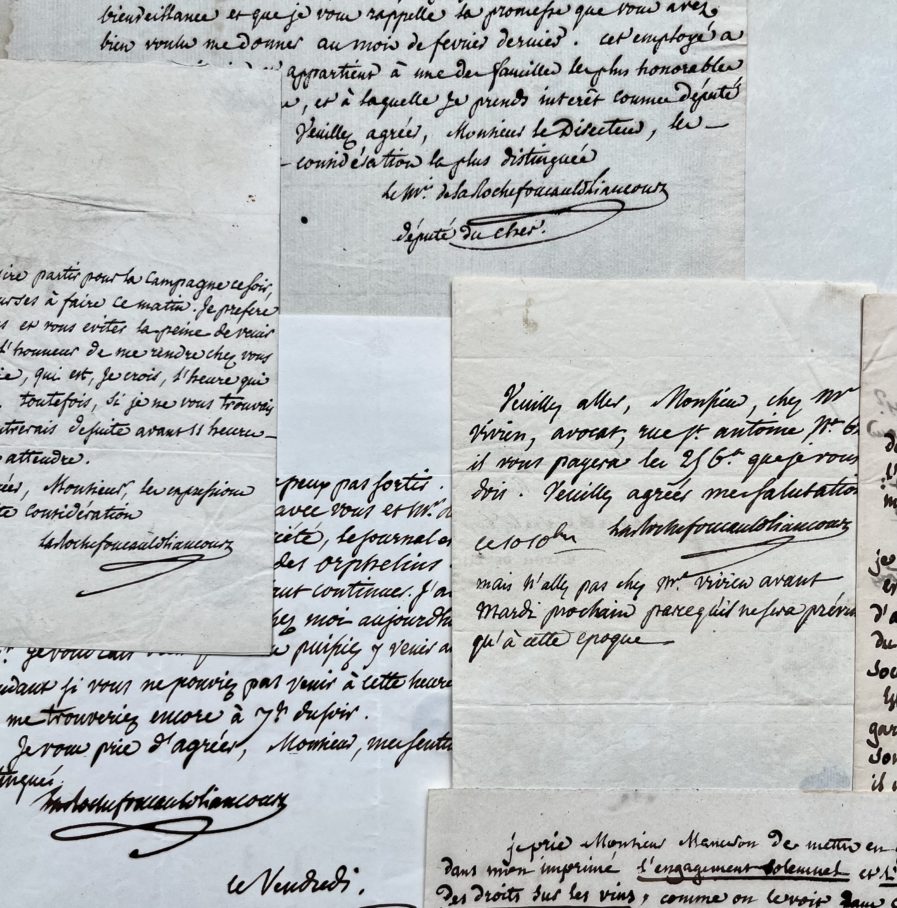 bienveillance et que je vous rappelle la promesse que vous avez
bien voulu me donner au mois de fevrier dernier. cet employé a
appartient à une des familles les plus honorables
, et à laquelle Je prends intérêt comme député
Veuillez agréer, Monsieur le Directeur, les
considération la plus distinguée
le Mis. de LaRochefoucauld Liancourt
député du Cher.
partir pour la Campagne ce soir,
à faire ce matin. Je préfere
et vous eviter la peine de venir
l'honneur de me rendre chez vous
, qui est, Je crois, l'heure qui
toutefois, Si je ne vous trouvais
de suite avant 11 heures
attendre.
, Monsieur, les expressions
considération
LaRochefoucauld Liancourt
peux pas sortir.
avec vous et Mr.
, le Journal
des orphelins.
continuer. J'
chez moi aujourd'hui
puissiez y venir
si vous ne pouviez pas venir à cette heure
me trouveriez encore à 7h. du soir.
Je vous prie d'agréer, Monsieur, mes
LaRochefoucauld Liancourt
ce Vendredi.
Veuillez aller, Monsieur, chez Mr
Vivien, avocat, rue St. antoine No.
il vous payera les que je vous
dois. Veuillez agréer mes Salutations
LaRochefoucauld Liancourt
ce 10 8bre
mais n'allez pas chez Mr. Vivien avant
Mardi prochain parcequ'il ne sera
qu'à cette epoque
je
du
il
je prie Monsieur de mettre en
dans mon imprimé l'engagement solemnel et
des droits sur les vins, comme on le voit dans